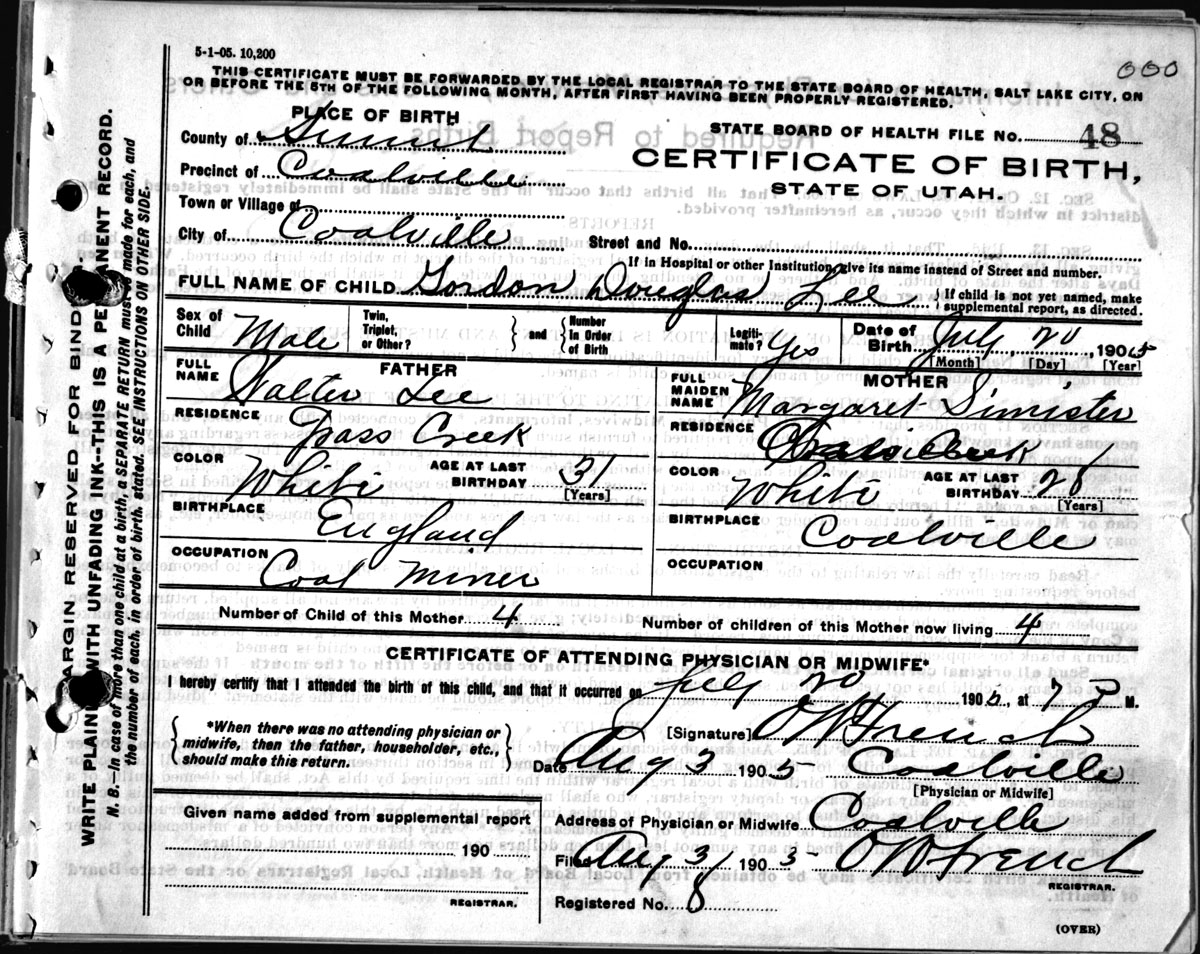 5-1-05. 10,200
000
THIS CERTIFICATE MUST BE FORWARDED BY THE LOCAL REGISTRAR TO THE STATE BOARD OF HEALTH, SALT LAKE CITY, ON
OR BEFORE THE 5TH OF THE FOLLOWING MONTH, AFTER FIRST HAVING BEEN PROPERLY REGISTERED.
PLACE OF BIRTH
County of Summit
Precinct of Coalville
Town or Village of
City of Coalville
STATE BOARD OF HEALTH FILE No. 48
CERTIFICATE OF BIRTH,
STATE OF UTAH.
Street and No.
If in Hospital or other Institution give its name instead of Street and number.
FULL NAME OF CHILD Gordon Douglas Lee } If child is not yet named, make supplemental report, as directed.
Sex of Child Male
Twin, Triplet, or Other? } and { Number In Order of Birth
Legitimate? Yes
Date of Birth July 20, 1905
[Month] [Day] [Year]
FATHER
FULL NAME Walter Lee
RESIDENCE Grass Creek
COLOR White AGE AT LAST BIRTHDAY 31
[Years]
BIRTHPLACE England
OCCUPATION Coal Miner
MOTHER
FULL MAIDEN NAME Margaret Simister
RESIDENCE
COLOR White AGE AT LAST BIRTHDAY 28
[Years]
BIRTHPLACE Coalville
OCCUPATION
Number of Child of this Mother 4 Number of children of this Mother now living 4
CERTIFICATE OF ATTENDING PHYSICIAN OR MIDWIFE*
I hereby certify that I attended the birth of this child, and that it occurred on July 20 1905, at 7 P M.
{ *When there was no attending physician or midwife, then the father, householder, etc., should make this return. }
[Signature] O W French
Date Aug 3 1905 Coalville
[Physician or Midwife]
Given name added from supplemental report
190
REGISTRAR.
Address of Physician or Midwife Coalville
Filed Aug 3 1905 O W French
REGISTRAR.
Registered No. 8
(OVER)
MARGIN RESERVED FOR BINDING.
WRITE PLAINLY WITH UNFADING INK--THIS IS A PERMANENT RECORD.
N. B.--In case of more than one child at a birth, a SEPARATE RETURN must be made for each, and
the number of each, in order of birth, stated. SEE INSTRUCTIONS ON OTHER SIDE.